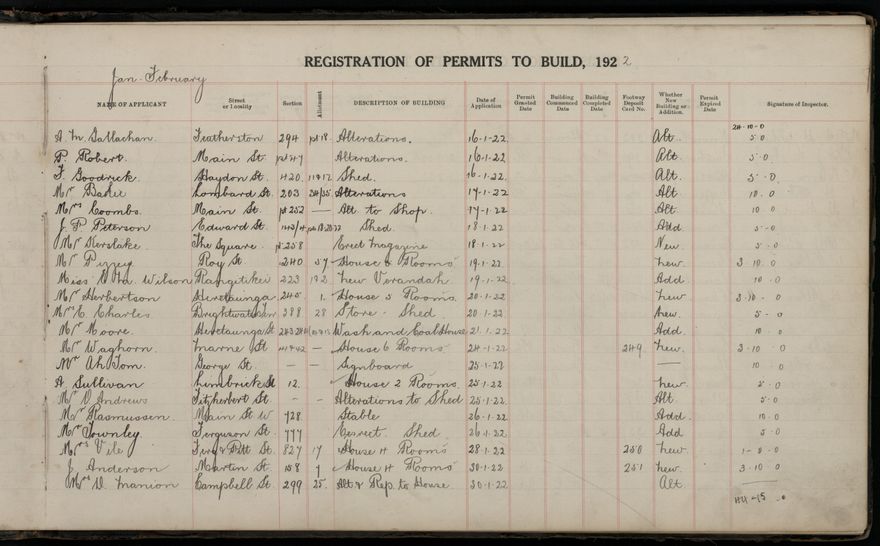 REGISTRATION OF PERMITS TO BUILD, 1922
Jan - February
NAME OF APPLICANT Street or Locality Section Allotment DESCRIPTION OF BUILDING Date of Application Permit Granted Date Building Commenced Date Building Completed Date Footway Deposit Card No. Whether New Building or Addition. Permit Expired Date Signature of Inspector.
24-10-0
A. M. Gallachan. Featherston 294 pt 18. Alterations. 16-1-22 Alt. 5-0
P. Robert. Main St. pt 47 Alterations. 16-1-22 Alt 5-0
F. Goodrick. Haydon St. 420 11 & 12 Shed. 16-1-22 Alt. 5-0
Mr Baker Lombard St. 203 34/35 Alterations 17-1-22 Alt 10-0
Mrs Coombs. Main St. pt 252 — Alt. to Shop. 17-1-22 Alt. 10-0
J. P. Peterson Edward St. Shed. 18-1-22 Add 5-0
Mr Kerslake. The Square. pt 258 Erect Magazine 18-1-22 New. 5-0
Mr Pizzey Roy St. 240 57 House 6 Rooms 19-1-22 New. 3-10-0
Miss Wilson Rangitikei 223 192 New Verandah 19-1-22 Add. 10-0
Mr Herbertson Heretaunga 245 1. House 5 Rooms. 20-1-22 New 3-10-0
Mr C. Charles Brightwater 388 28 Store - Shed. 20-1-22 New. 5-0
Mr Moore. Heretaunga St Wash and Coal House 21-1-22 Add. 10-0
Mr Waghorn. Marne St 41 & 42 — House 6 Rooms 24-1-22 249 New. 3-10-0
Mr Ah Tom. George St. — — Signboard 25-1-22 — 10-0
A Sullivan Limbrick St 12. House 2 Rooms. 25-1-22 New. 5-0
Mr O Andrews Fitzherbert St. - - Alterations to Shed 25-1-22 Alt 5-0
Mr Rasmussen. Main St W 728 Stable 26-1-22 Add. 10-0
Mr Townley. Ferguson St. 777 Shed. 26-1-22 Add 5-0
Mrs Vile Ferg & Pitt St. 827 17 House 4 Rooms 28-1-22 250 New. 1-0-0
J. Anderson Martin St. 158 7 House 4 Rooms 30-1-22 251 New. 3-10-0
Mrs D. Manion Campbell St. 299 25. Alt & Rep. to House. 30-1-22 Alt. —